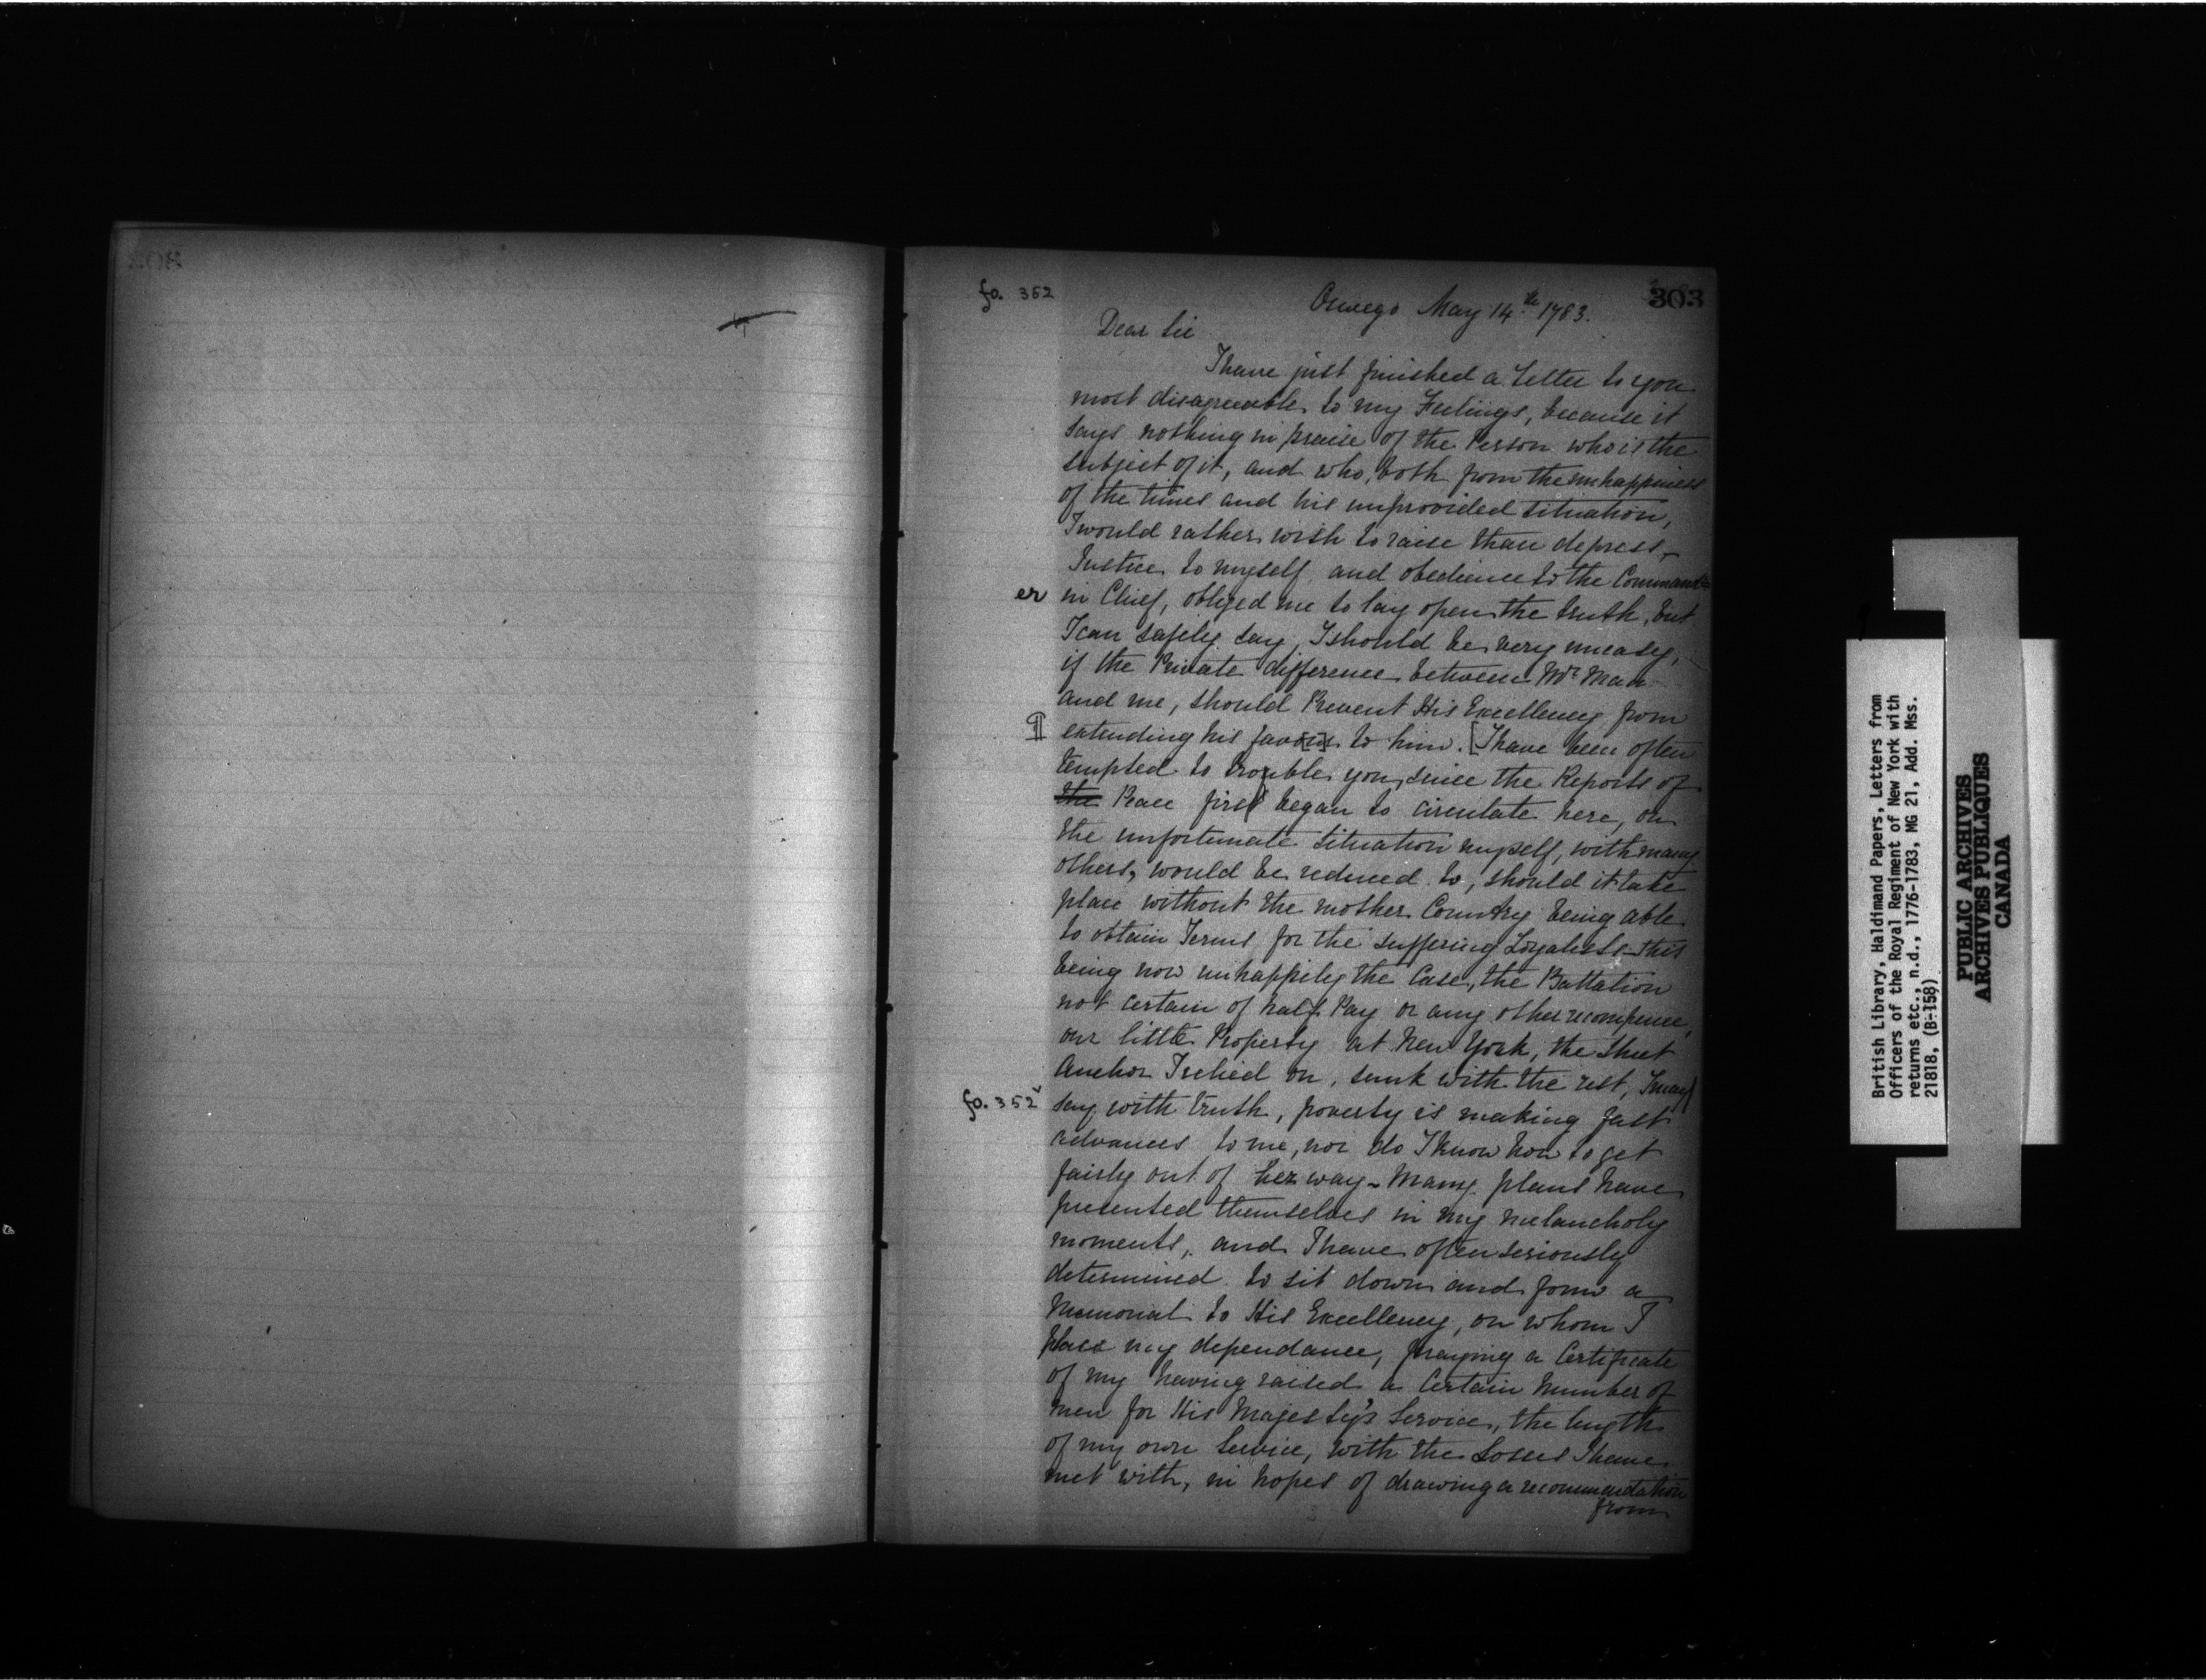 303
fo. 352
Oswego May 14th 1783.
Dear Sir
I have just finished a Letter to you
most disagreeable to my Feelings, because it
says nothing in praise of the Person who is the
subject of it, and who, both from the unhappiness
of the times and his unprovided situation,
I would rather wish to raise than depress,
Justice to myself and obedience to the Command=
er in Chief, obliged me to lay open the truth, but
I can safely say, I should be very uneasy,
if the Private difference between Mr Man
and me, should Prevent His Excellency from
¶ extending his favors to him. [I have been often
tempted to trouble you, since the Reports of
the Peace first began to circulate here, on
the unfortunate situation myself, with many
others, would be reduced to, should it take
place without the mother Country being able
to obtain Terms for the suffering Loyalists - this
being now unhappily the Case, the Battalion
not certain of half Pay or any other recompence,
our little Property at New York, the Sheet
Anchor I relied on, sunk with the rest, I may
fo. 352v say with truth, poverty is making fast
advances to me, nor do I know how to get
fairly out of her way - Many plans have
presented themselves in my melancholy
moments, and I have often seriously
determined to sit down and form a
Memorial to His Excellency, on whom I
place my dependance, praying a Certificate
of my having raised a Certain Number of
men for His Majesty's Service, the length
of my own Service, with the Losses I have
met with, in hopes of drawing a recommendation
from
British Library, Haldimand Papers, Letters from
Officers of the Royal Regiment of New York with
returns etc., n.d., 1776-1783, MG 21, Add. Mss.
21818, (B-158)
PUBLIC ARCHIVES
ARCHIVES PUBLIQUES
CANADA